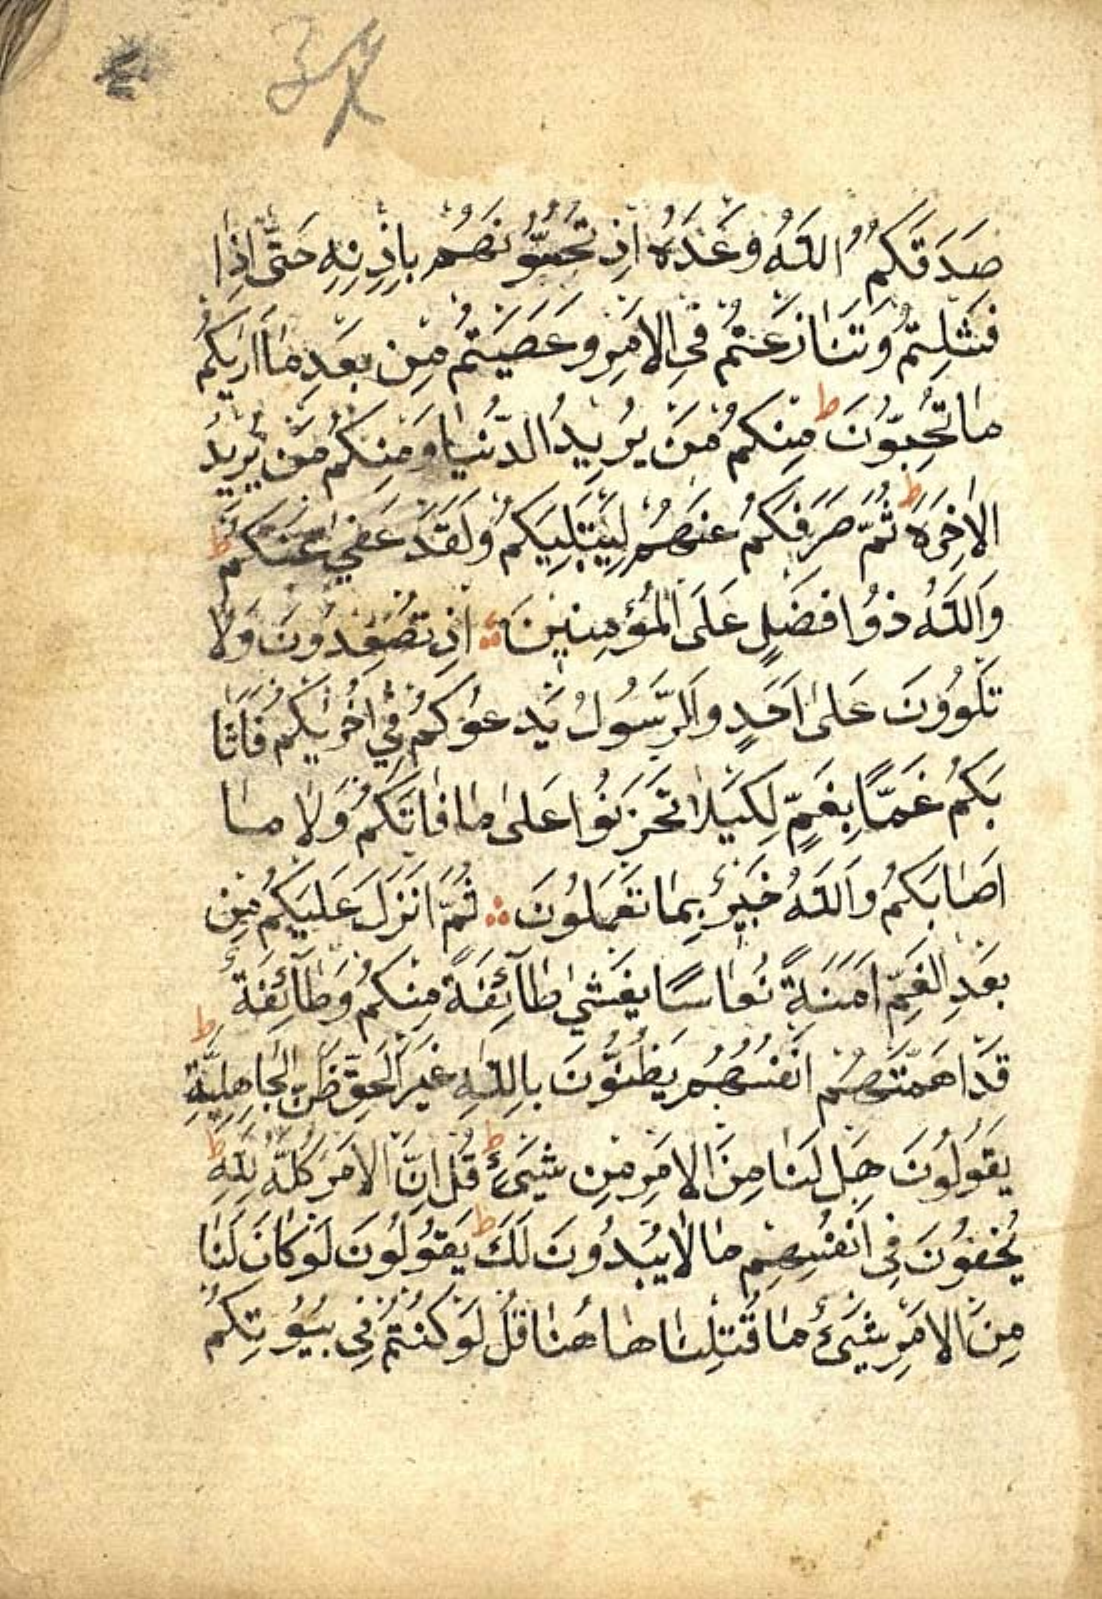 34
صَدَقَكُمُ اللّٰهُ وَعْدَهُ اِذْ تَحُسُّونَهُمْ بِاِذْنِهِ حَتّٰى اِذَا
فَشِلْتُمْ وَتَنَازَعْتُمْ فِي الْاَمْرِ وَعَصَيْتُمْ مِنْ بَعْدِ مَا اَرٰيكُمْ
مَا تُحِبُّونَ ط مِنْكُمْ مَنْ يُرِيدُ الدُّنْيَا وَمِنْكُمْ مَنْ يُرِيدُ
الْاٰخِرَةَ ط ثُمَّ صَرَفَكُمْ عَنْهُمْ لِيَبْتَلِيَكُمْ وَلَقَدْ عَفٰي عَنْكُمْ ط
وَاللّٰهُ ذُوا فَضْلٍ عَلَى الْمُؤْمِنِينَ ۞ اِذْ تُصْعِدُونَ وَلَا
تَلْوُونَ عَلٰى اَحَدٍ وَالرَّسُولُ يَدْعُوكُمْ فِي اُخْرٰيكُمْ فَاَثَا
بَكُمْ غَمًّا بِغَمٍّ لِكَيْلَا تَحْزَنُوا عَلٰى مَا فَاتَكُمْ وَلَا مَا
اَصَابَكُمْ وَاللّٰهُ خَبِيرٌ بِمَا تَعْمَلُونَ ۞ ثُمَّ اَنْزَلَ عَلَيْكُمْ مِنْ
بَعْدِ الْغَمِّ اَمَنَةً نُعَاسًا يَغْشٰي طَآئِفَةً مِنْكُمْ وَطَآئِفَةٌ
قَدْ اَهَمَّتْهُمْ اَنْفُسُهُمْ يَظُنُّونَ بِاللّٰهِ غَيْرَ الْحَقِّ ظَنَّ الْجَاهِلِيَّةِ ط
يَقُولُونَ هَلْ لَنَا مِنَ الْاَمْرِ مِنْ شَيْءٍ ط قُلْ اِنَّ الْاَمْرَ كُلَّهُ لِلّٰهِ ط
يُخْفُونَ فِي اَنْفُسِهِمْ مَا لَا يُبْدُونَ لَكَ ط يَقُولُونَ لَوْ كَانَ لَنَا
مِنَ الْاَمْرِ شَيْءٌ مَا قُتِلْنَا هَاهُنَا قُلْ لَوْ كُنْتُمْ فِي بُيُوتِكُمْ